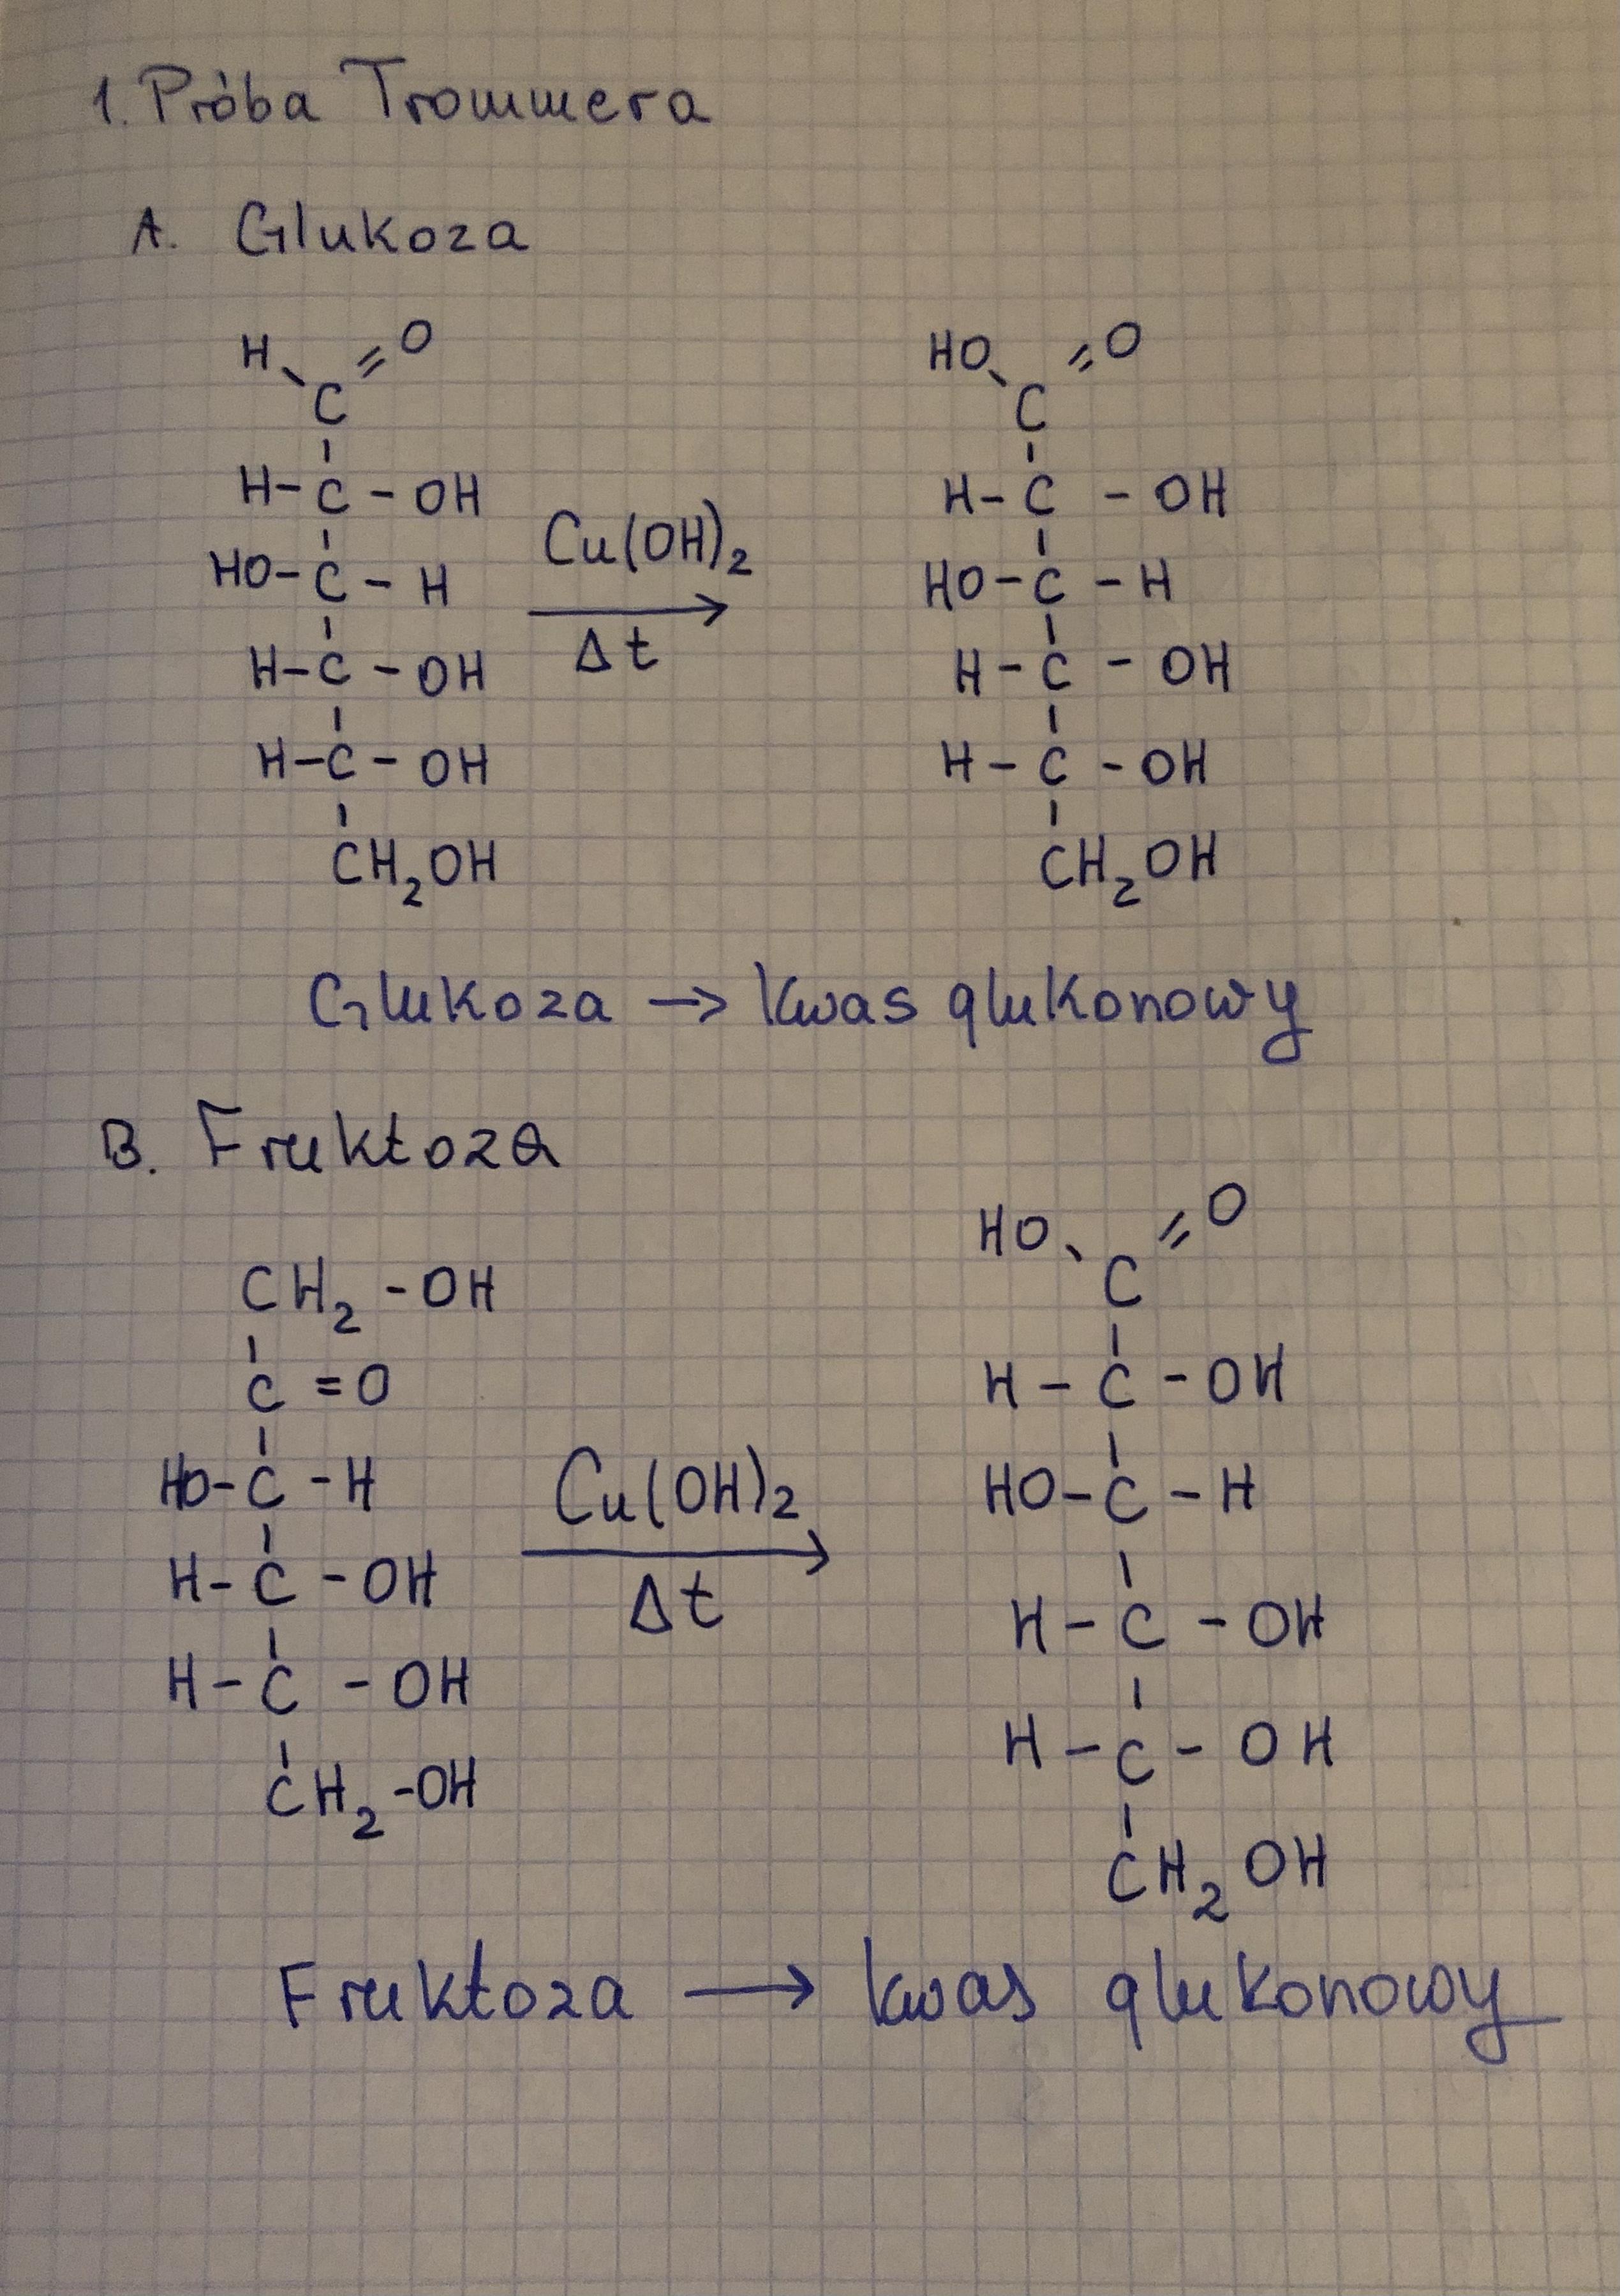 1. Próba Trommera
A. Glukoza
H O
\ //
C
|
H-C-OH
|
HO-C-H
|
H-C-OH
|
H-C-OH
|
CH₂OH
Cu(OH)₂
Δt
HO O
\ //
C
|
H-C-OH
|
HO-C-H
|
H-C-OH
|
H-C-OH
|
CH₂OH
Glukoza → kwas glukonowy
B. Fruktoza
CH₂-OH
|
C=O
|
HO-C-H
|
H-C-OH
|
H-C-OH
|
CH₂-OH
Cu(OH)₂
Δt
HO O
\ //
C
|
H-C-OH
|
HO-C-H
|
H-C-OH
|
H-C-OH
|
CH₂OH
Fruktoza → kwas glukonowy